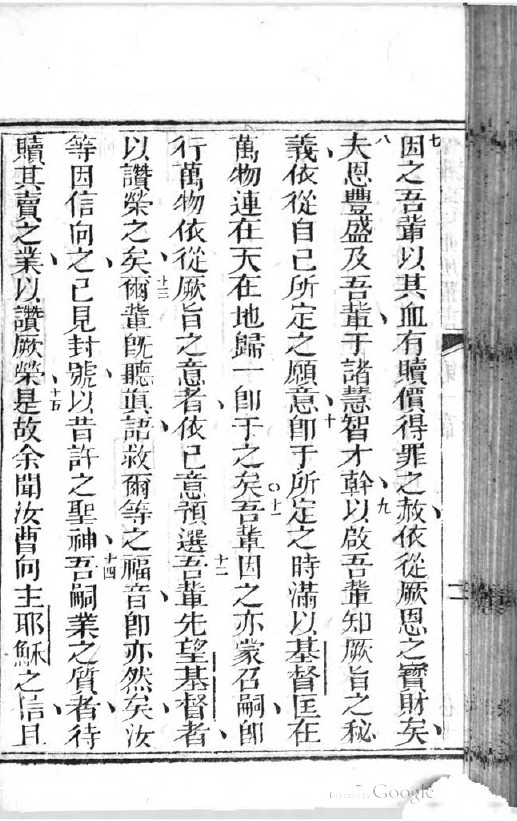 七因之吾輩以其血有贖價得罪之赦依從厥恩之寶財矣
八夫恩豐盛及吾輩于諸慧智才幹九以啟吾輩知厥旨之秘
義依從自己所定之願意十即于所定之時滿以基督匡在
萬物連在天在地歸一即于之矣十一吾輩因之亦蒙召嗣即
行萬物依從厥旨之意者依已意預選吾輩十二先望基督者
以讚榮之矣十三爾輩既聽真語救爾等之福音即亦然矣汝
等因信向之已見封號以昔許之聖神十四吾嗣業之質者待
贖其賣之業以讚厥榮十五是故余聞汝曹向主耶穌之信且
Digitized by Google